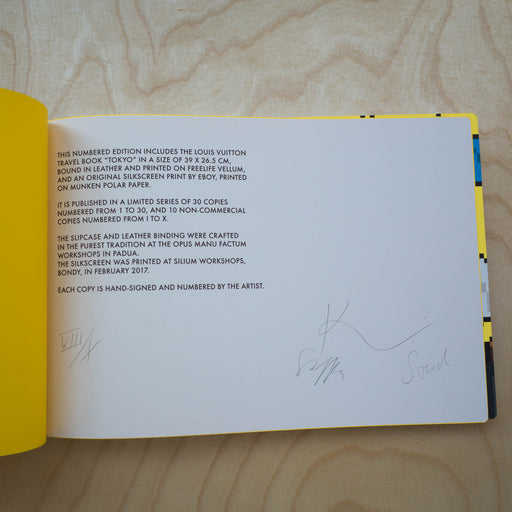 THIS NUMBERED EDITION INCLUDES THE LOUIS VUITTON
TRAVEL BOOK "TOKYO" IN A SIZE OF 39 X 26.5 CM,
BOUND IN LEATHER AND PRINTED ON FREELIFE VELLUM,
AND AN ORIGINAL SILKSCREEN PRINT BY EBOY, PRINTED
ON MUNKEN POLAR PAPER.
IT IS PUBLISHED IN A LIMITED SERIES OF 30 COPIES
NUMBERED FROM 1 TO 30, AND 10 NON-COMMERCIAL
COPIES NUMBERED FROM I TO X.
THE SLIPCASE AND LEATHER BINDING WERE CRAFTED
IN THE PUREST TRADITION AT THE OPUS MANU FACTUM
WORKSHOPS IN PADUA.
THE SILKSCREEN WAS PRINTED AT SILIUM WORKSHOPS,
BONDY, IN FEBRUARY 2017.
EACH COPY IS HAND-SIGNED AND NUMBERED BY THE ARTIST.
VIII/X